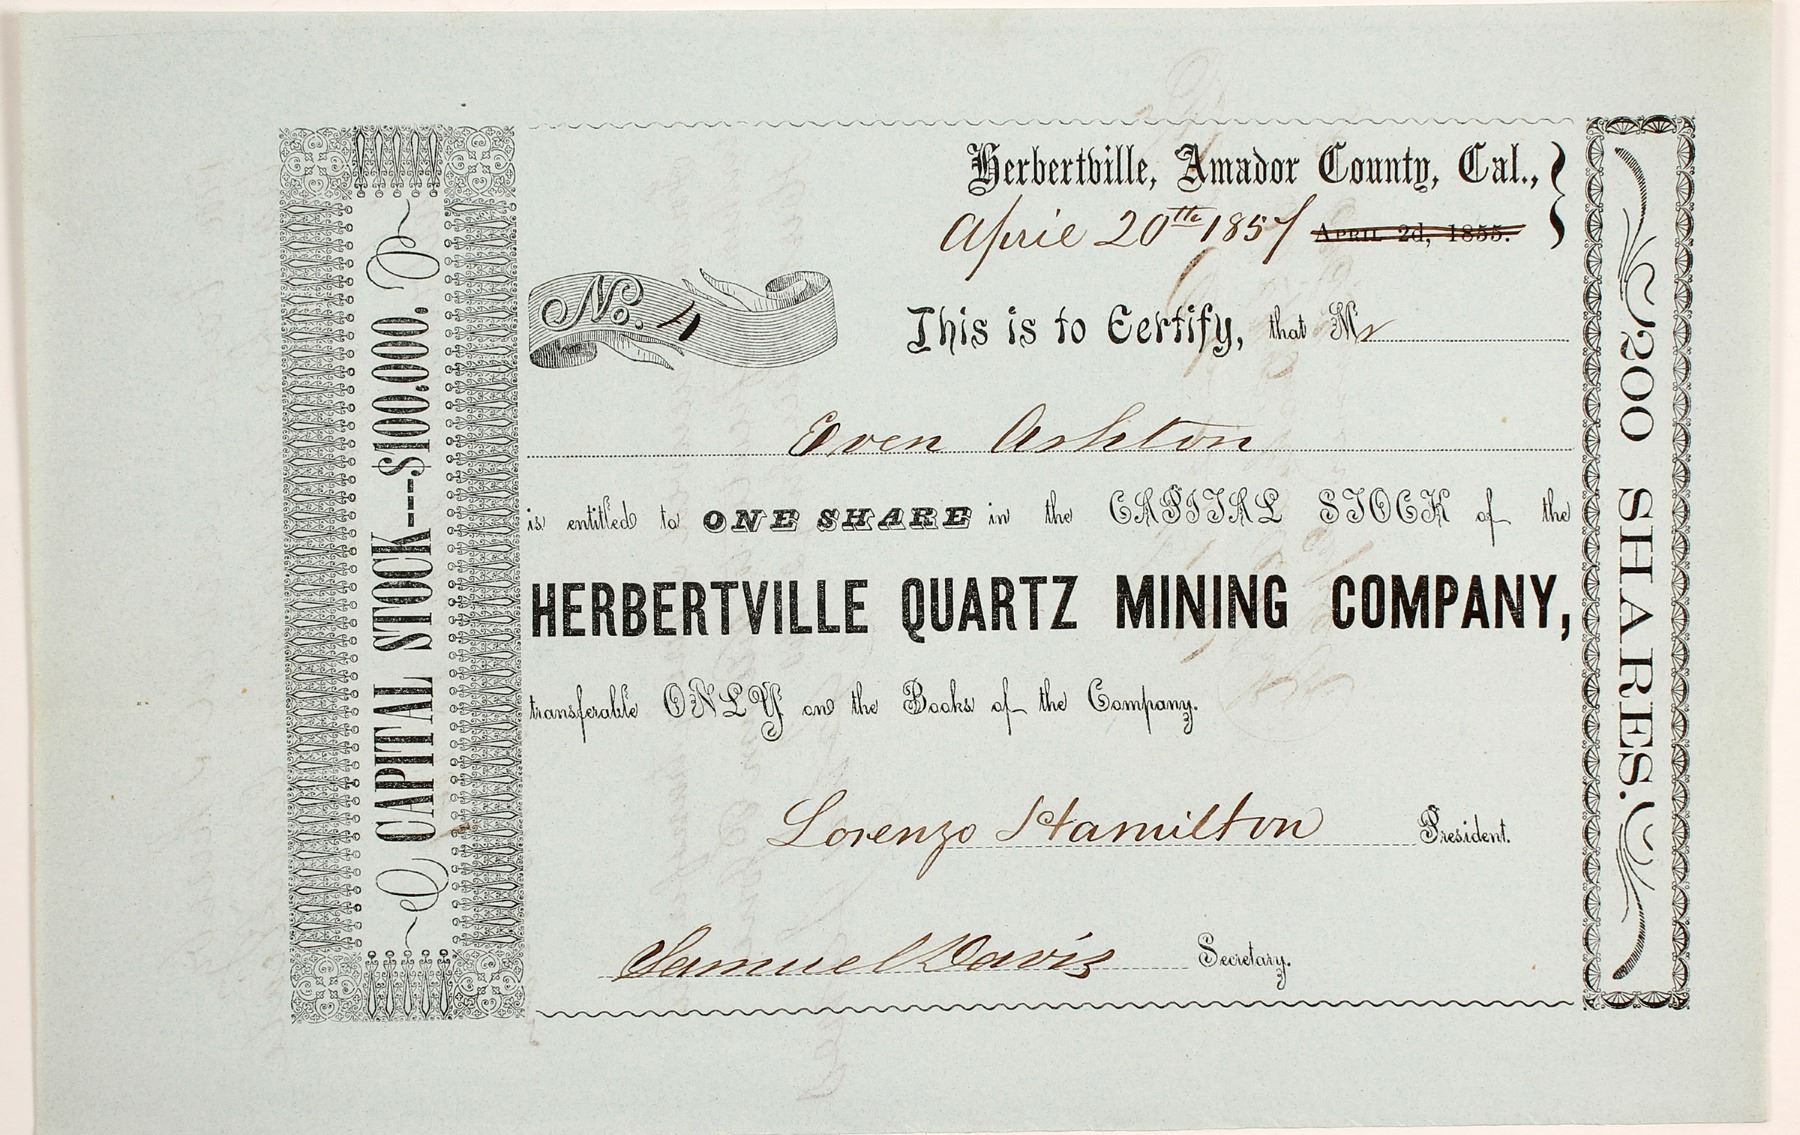 Herbertville, Amador County, Cal.,
April 20th 1857 April 2d, 1855.
No. 4
This is to Certify, that Mr
Even Ashton
is entitled to ONE SHARE in the CAPITAL STOCK of the
HERBERTVILLE QUARTZ MINING COMPANY,
transferable ONLY on the Books of the Company.
Lorenzo Hamilton President.
Samuel Davis Secretary.
CAPITAL STOCK---$100.000.
200 SHARES.